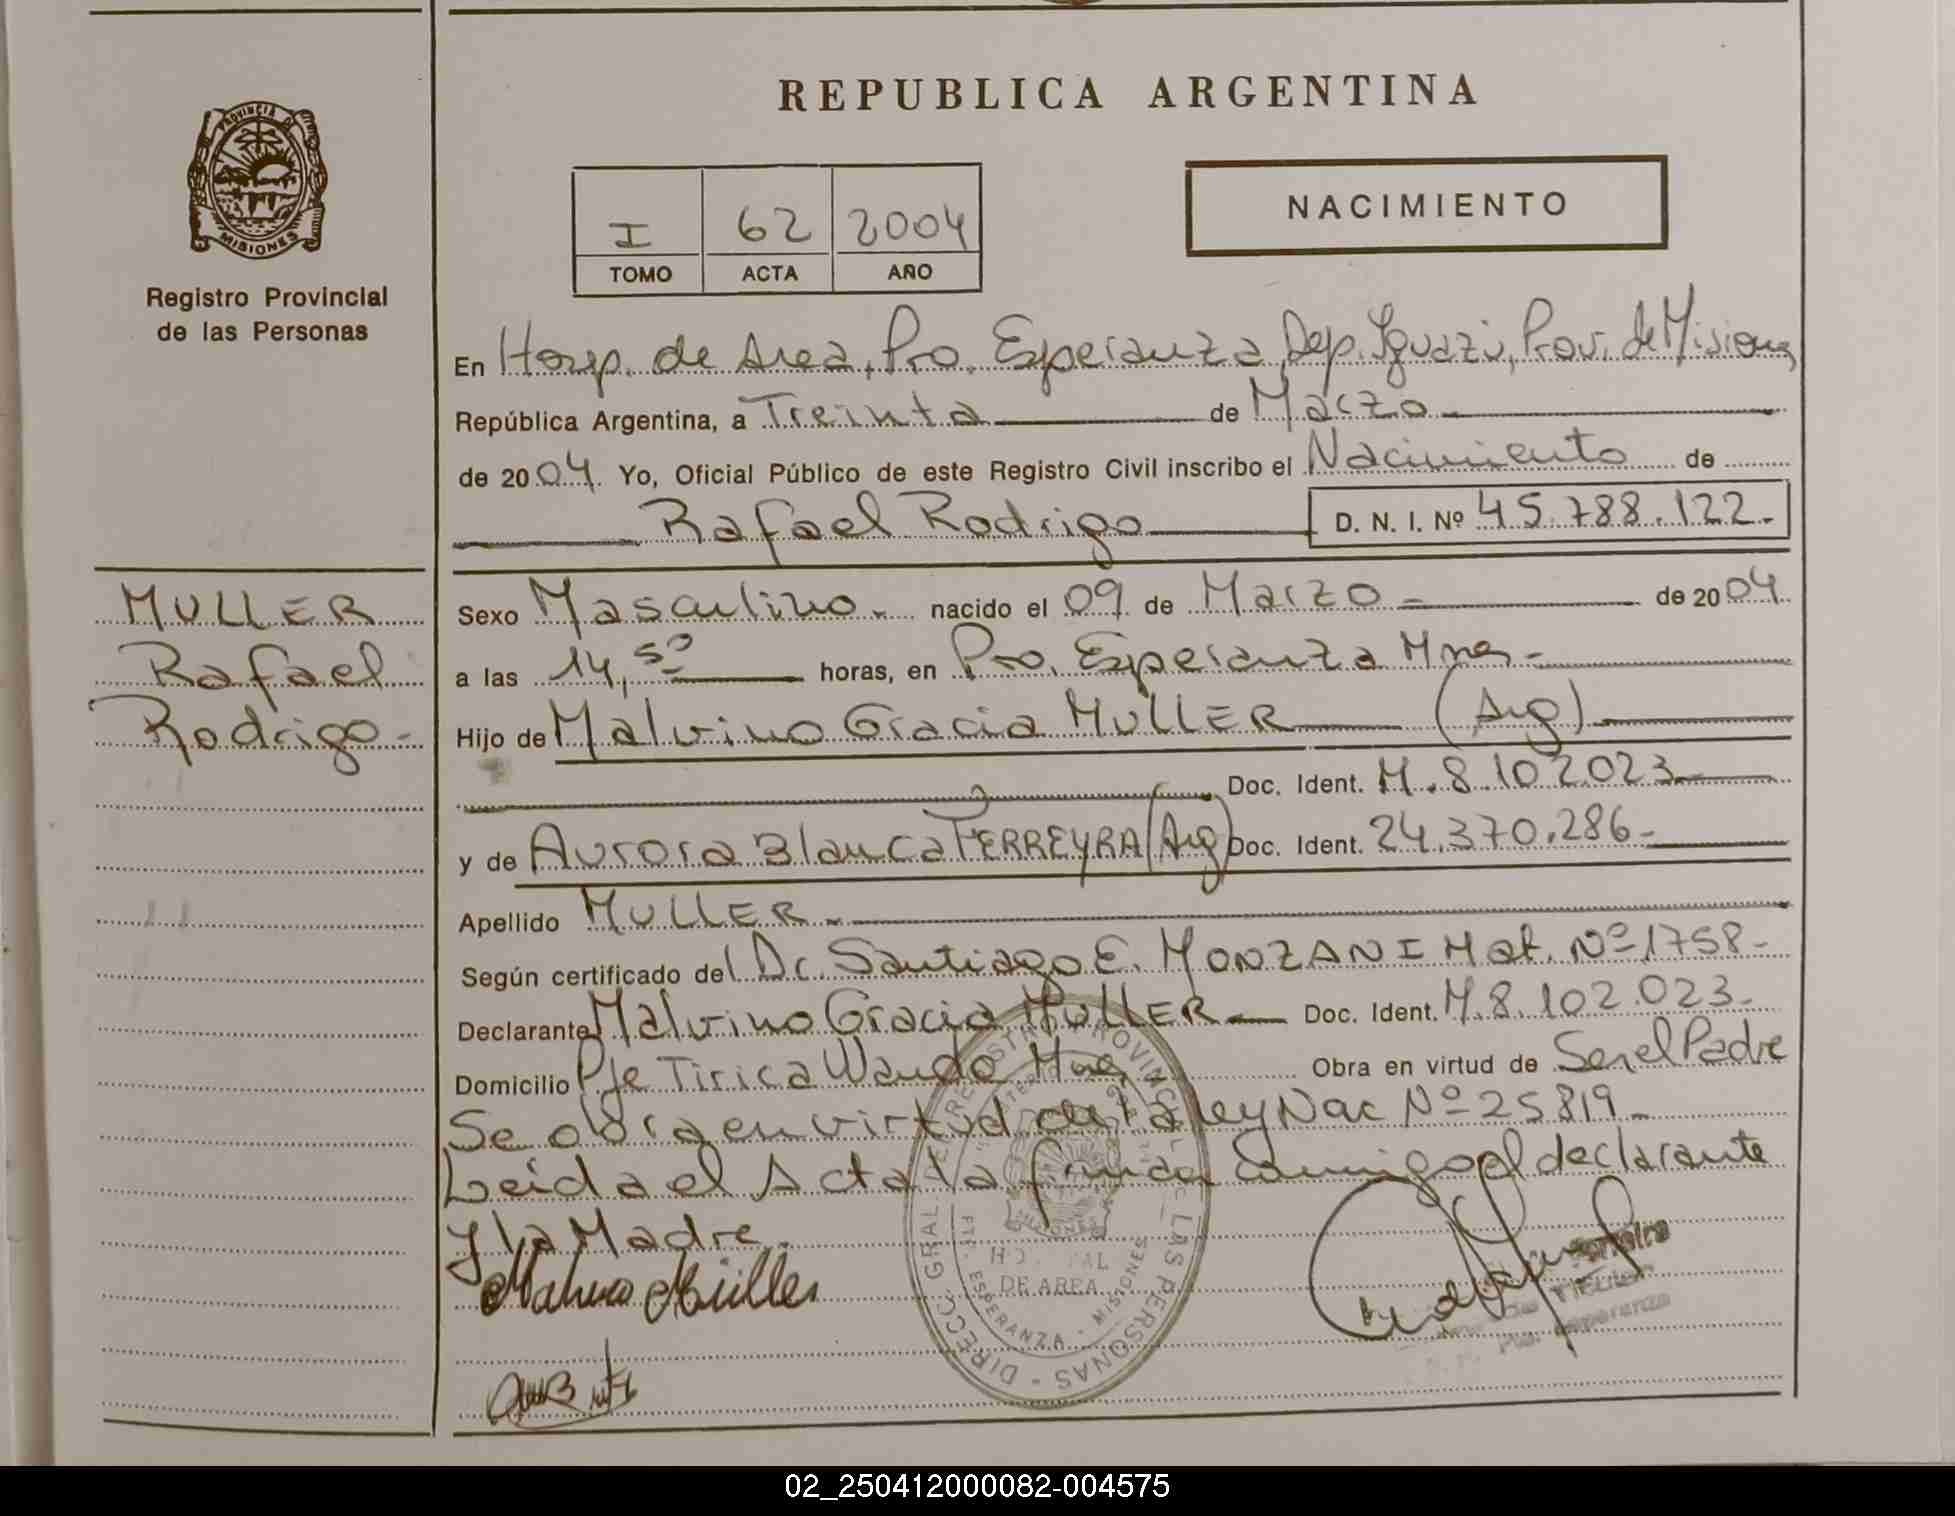 REPUBLICA ARGENTINA
PROVINCIA D
MISIONES
Registro Provincial
de las Personas
NACIMIENTO
I 62 2004
TOMO ACTA AÑO
En Hosp. de Area, Pto. Esperanza, Dep. Iguazú, Prov. de Misiones
República Argentina, a Treinta de Marzo
de 2004. Yo, Oficial Público de este Registro Civil inscribo el Nacimiento de
Rafael Rodrigo D. N. I. Nº 45.788.122.-
MULLER
Rafael
Rodrigo.-
Sexo Masculino.- nacido el 09 de Marzo.- de 2004.
a las 14,50 horas, en Pto. Esperanza Mnes.-
Hijo de Malvino Gracia MULLER (Arg)
Doc. Ident. M. 8.102.023.-
y de Aurora Blanca FERREYRA (Arg) Doc. Ident. 24.370.286.-
Apellido MULLER.-
Según certificado del Dr. Santiago E. MONZANI Mat. Nº 1758.-
Declarante Malvino Gracia MULLER Doc. Ident. M.8.102.023.-
Domicilio Pje Tirica Wanda Mnes.- Obra en virtud de Ser el Padre
Se obra en virtud de la ley Nac Nº 25819.-
Leida el Acta la firma conmigo el declarante
y la Madre.
Malvino Müller
DIRECC. GRAL. REGISTRO PROVINCIAL DE LAS PERSONAS
HOSPITAL
DE AREA
PTO. ESPERANZA - MISIONES
02_250412000082-004575